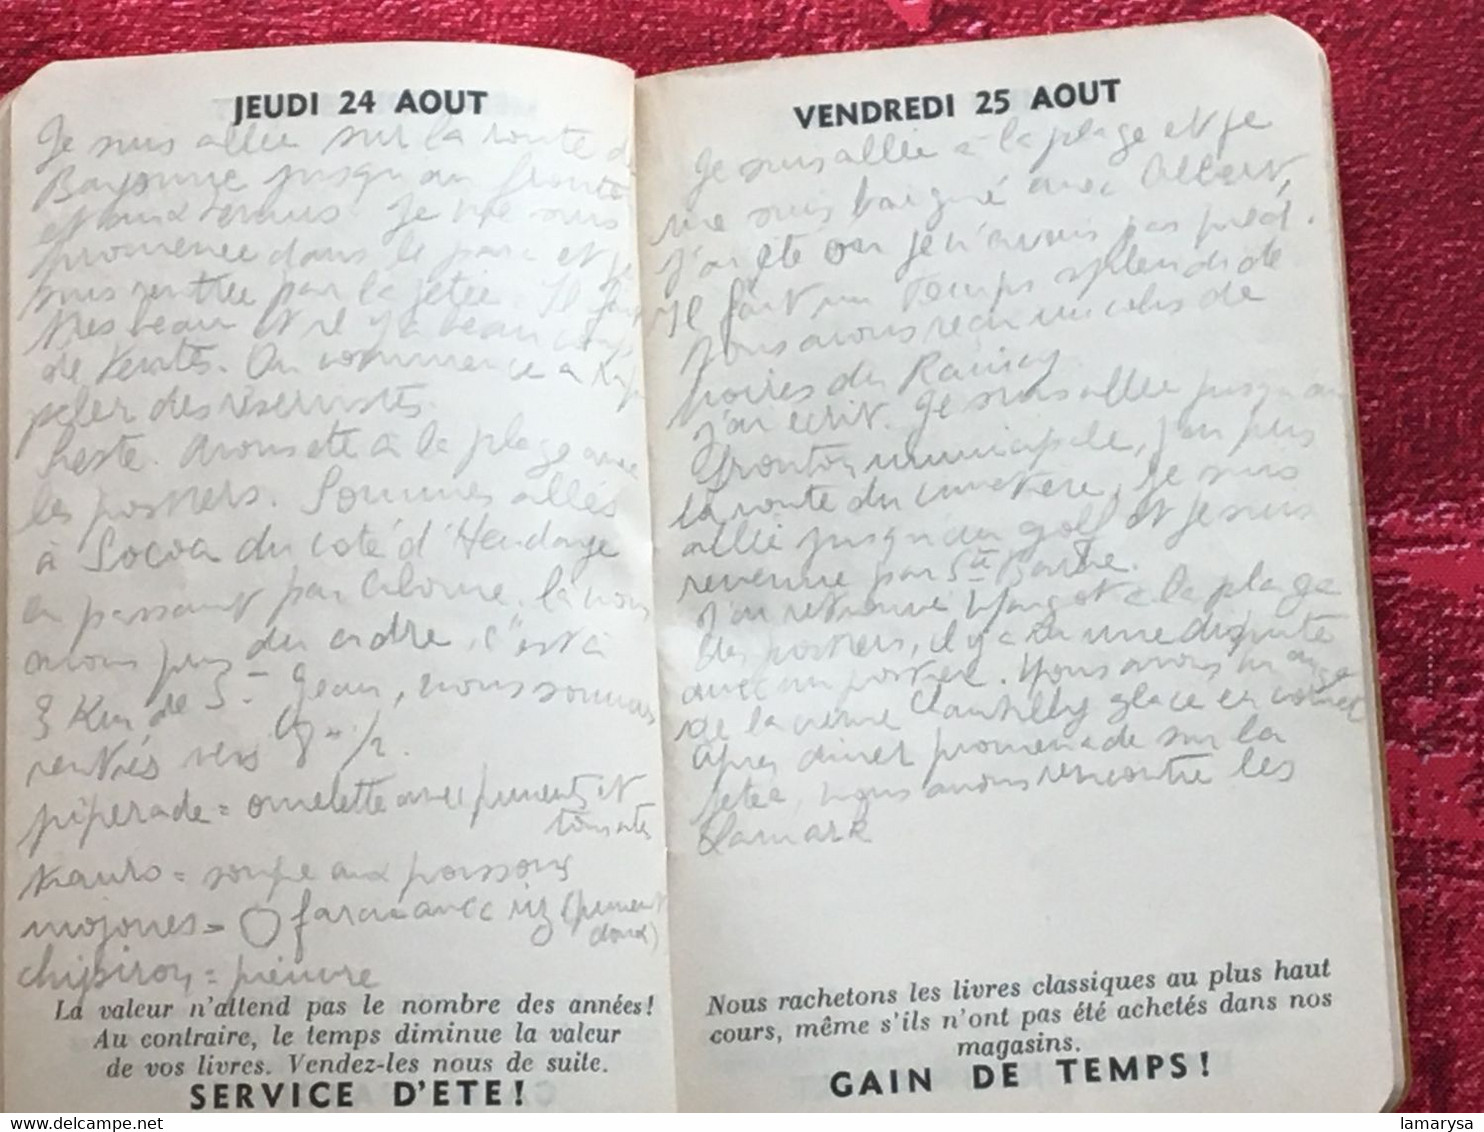 JEUDI 24 AOUT
Je suis allée sur la route de
Bayonne jusqu'au
et
promenée dans le parc et je
suis rentrée par la jetée. Il fait
très beau et il y a beaucoup
de vents. On commence à rap
peler des réservistes.
Avons été à la plage avec
les postiers. Sommes allés
à Socoa du côté d'Hendaye
en passant par la nous
avons pris du cidre, c'est à
3 Km de St Jean, nous sommes
rentrés vers 8h 1/2.
piperade = omelette avec piments et
tomates
= soupe aux poissons
= farci avec riz (piment
doux)
chipiron = pieuvre
La valeur n'attend pas le nombre des années!
Au contraire, le temps diminue la valeur
de vos livres. Vendez-les nous de suite.
SERVICE D'ETE!
VENDREDI 25 AOUT
Je suis allée à la plage et je
me suis baigné avec Albert,
j'ai été où je n'avais pas pied.
Il fait un temps splendide
Nous avons reçu un colis de
poires de
J'ai écrit. Je suis allée jusqu'au
fronton municipale, j'ai pris
la route du cimetière, je suis
allée jusqu'au golf et je suis
revenue par Ste Barbe.
J'ai retrouvé Margot à la plage
des postiers, il y a eu une dispute
avec un postier. Nous avons mangé
de la crème Chantilly glace en cornet
après diner promenade sur la
jetée, nous avons rencontré les
Lamark
Nous rachetons les livres classiques au plus haut
cours, même s'ils n'ont pas été achetés dans nos
magasins.
GAIN DE TEMPS!
lamarysa